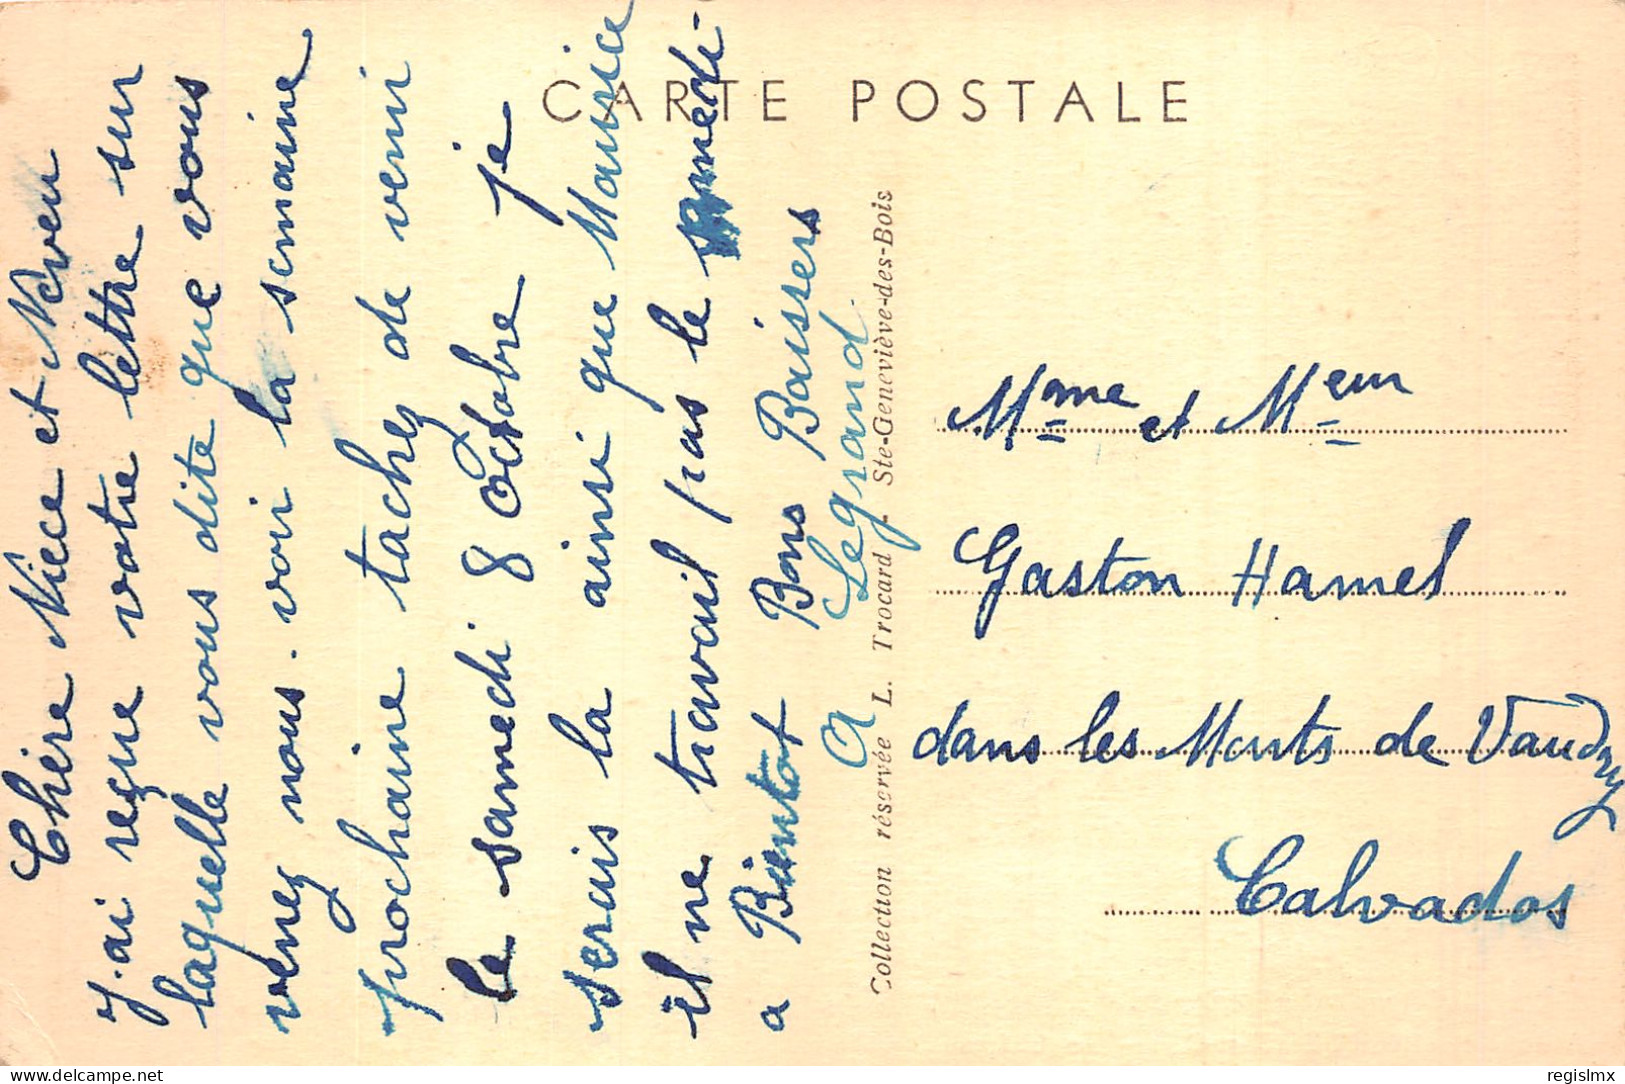 CARTE POSTALE
Chère Nièce et Neveu
J.ai reçue votre lettre sur
laquelle vous dite que vous
venez nous. voir la semaine
prochaine tachez de veni
le samedi 8 Octobre je
serais la ainsi que Maurice
il ne travail pas le samedi-
a Bientot Bons Baisers
A Legrand.
Collection réservée L. Trocard - Ste-Geneviève-des-Bois
Mme et Meur
Gaston Hamel
dans les Monts de Vaudry
Calvados
delcampe.net
regislmx